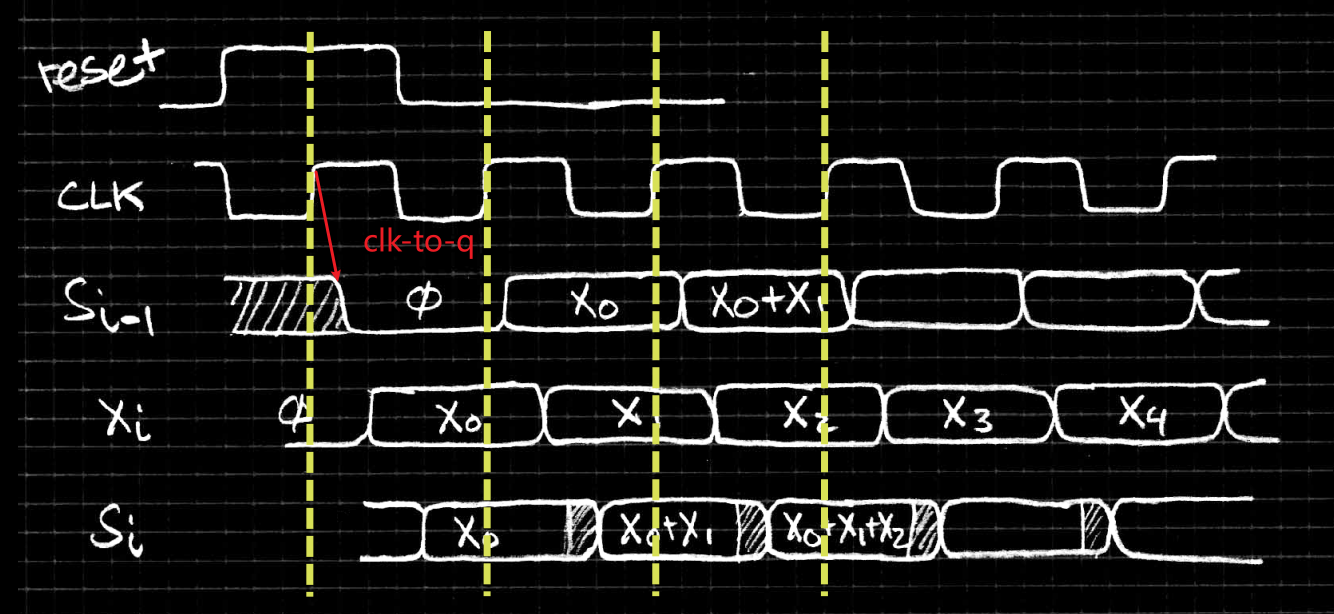 reset
CLK
clk-to-q
Si-1 ϕ X0 X0+X1
Xi ϕ X0 X1 X2 X3 X4
Si X0 X0+X1 X0+X1+X2